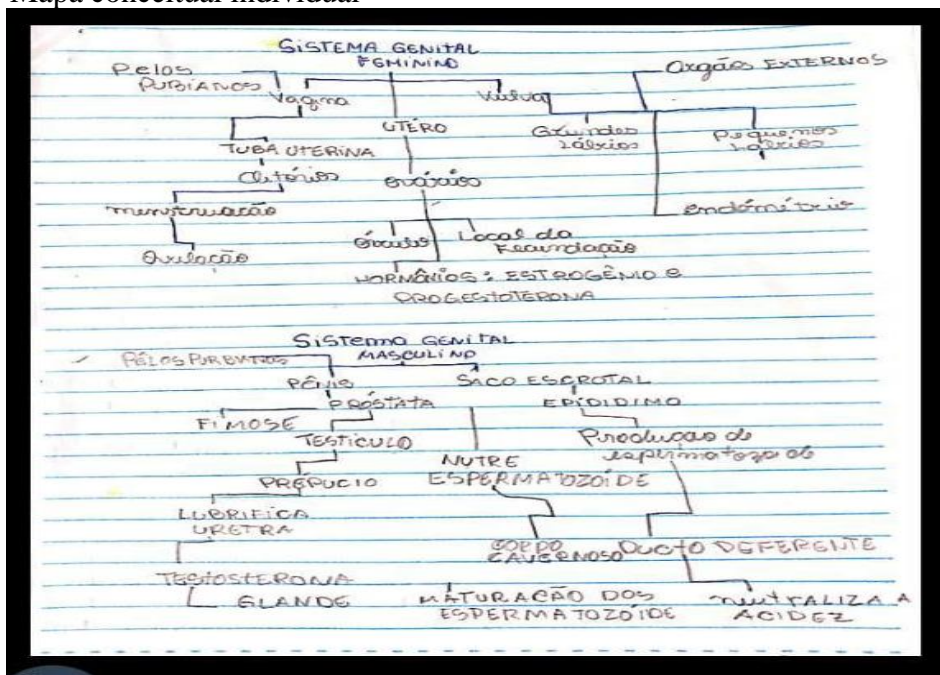 Mapa conceitual individual
SISTEMA GENITAL
FEMININO
Pelos
PUBIANOS
Orgãos EXTERNOS
Vagina
Vulva
UTÉRO
Grandes
Lábrios
Pequenos
Lábrios
TUBA UTERINA
Clitórios
ovários
menstruação
endométrio
Ovulação
Local da
Fecundação
HORMÔNIOS: ESTROGÊNIO e
PROGESTOTERONA
SISTEMA GENITAL
MASCULINO
PÊNIS
SACO ESCROTAL
PRÓSTATA
EPIDIDIMO
FIMOSE
TESTICULO
Produçao de
espermatozoide
NUTRE
ESPERMATOZOÍDE
PREPUCIO
LUBRIFICA
URETRA
CORPO
CAVERNOSO
DUCTO DEFERENTE
TESTOSTERONA
GLANDE
MATURAÇÃO DOS
ESPERMATOZOIDE
neutrALIZA A
ACIDEZ